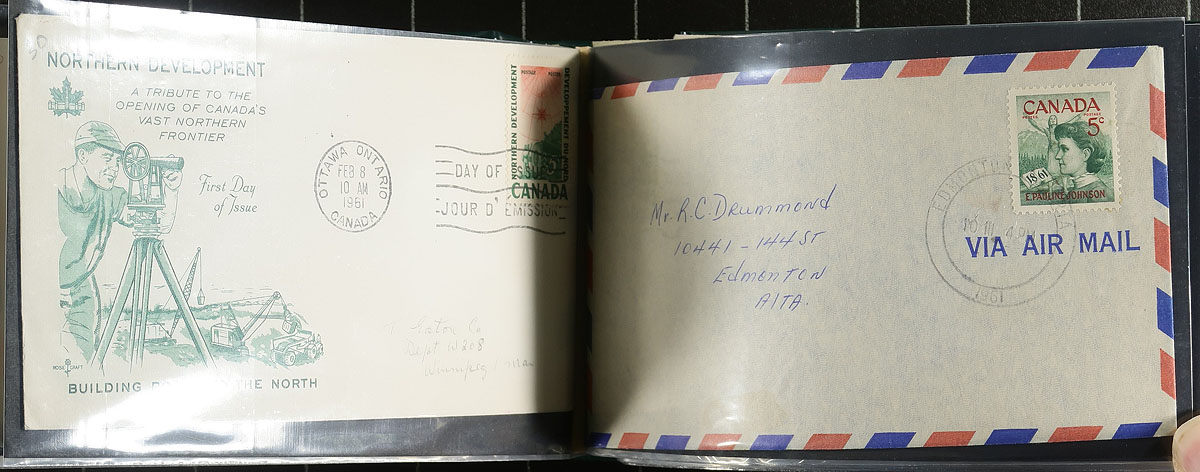 NORTHERN DEVELOPMENT
A TRIBUTE TO THE
OPENING OF CANADA'S
VAST NORTHERN
FRONTIER
First Day
of Issue
OTTAWA ONTARIO
FEB 8
10 AM
1961
CANADA
DAY OF ISSUE
JOUR D'EMISSION
POSTAGE POSTES
NORTHERN DEVELOPMENT
DEVELOPPEMENT DU NORD
5¢
CANADA
T. Eaton Co
Dept W208
Winnipeg 1 Man
ROSE CRAFT
BUILDING THE NORTH
CANADA
POSTAGE POSTES
5¢
1861
E. PAULINE JOHNSON
EDMONTON
1961
VIA AIR MAIL
Mr. R.C. Drummond
10441 - 144 ST
Edmonton
Alta.